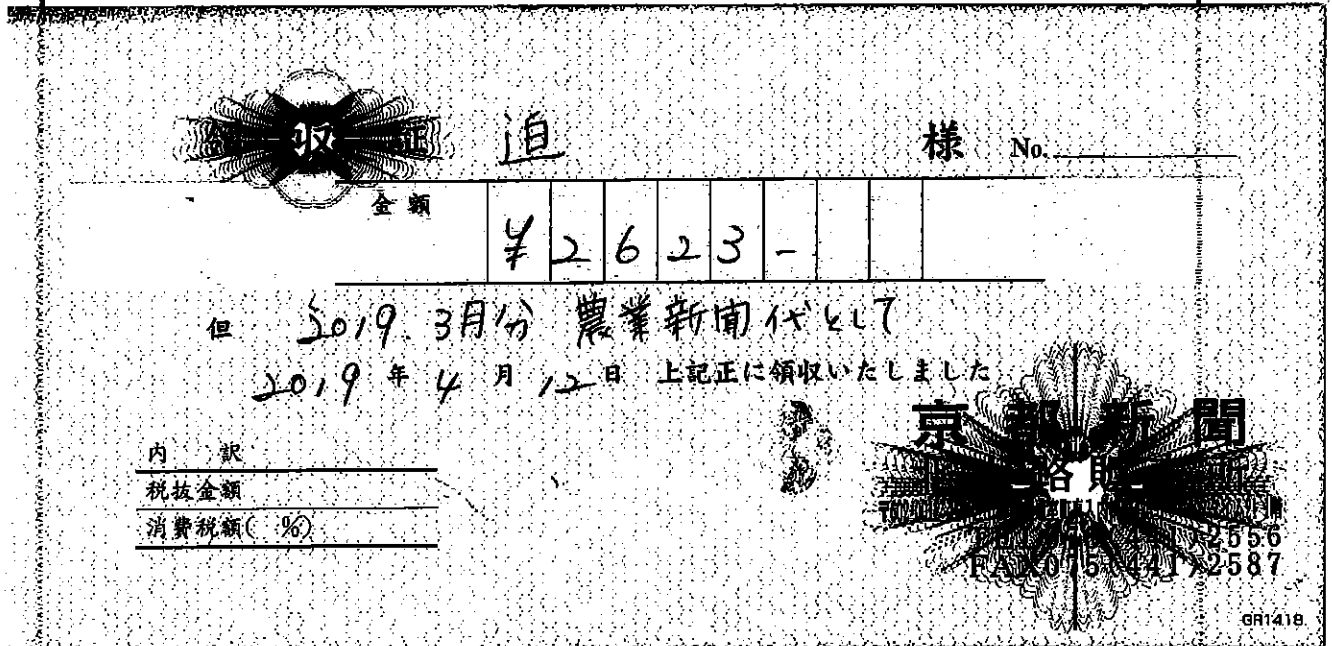 領収証 迫 様 No.
金額 ¥2623-
但 2019.3月分 農業新聞代として
2019年4月12日 上記正に領収いたしました
京都新聞
内訳
税抜金額
消費税額( %)
2556
FAX075(441)2587
GR1418